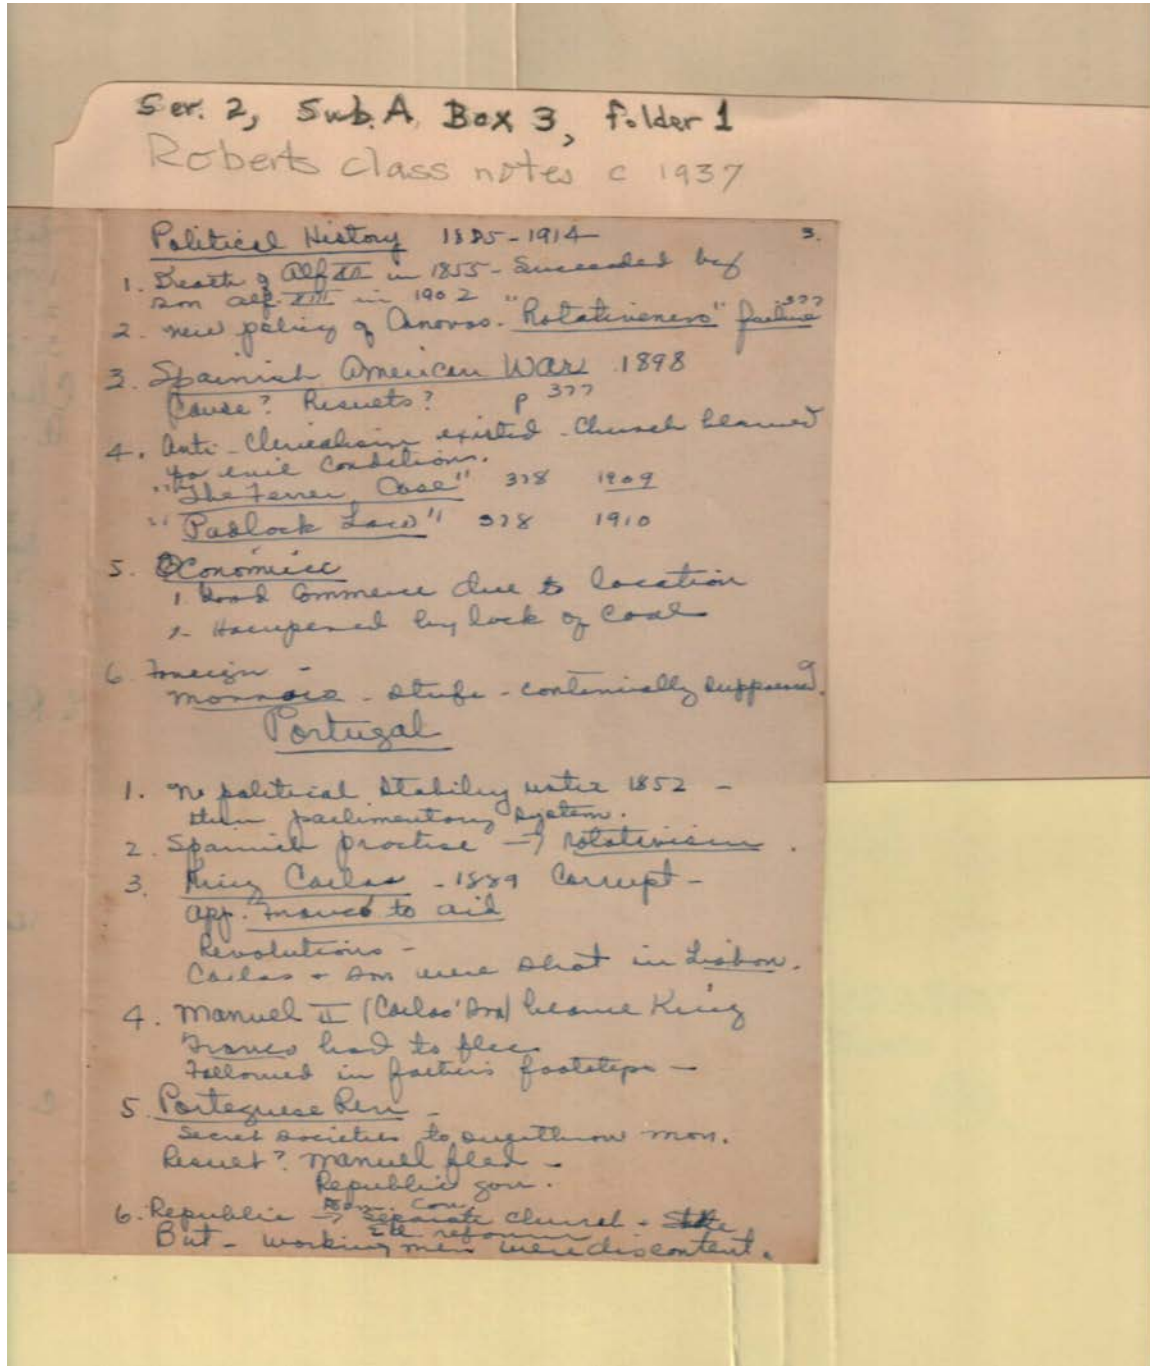 Ser. 2, Sub. A Box 3, folder 1
Roberts class notes c 1937
Political History 1885-1914
3.
1. Death of Alf XII in 1855 - Succeeded by
son Alf. XIII in 1902
2. New policy of Canovas. "Rotativeness" failure 377
3. Spainish American War 1898
Cause? Results? p 377
4. Anti-Clericalism existed - Church blamed
for evil conditions.
"The Ferrer Case" 378 1909
"Padlock Law" 378 1910
5. Economic
1. Good Commerce due to location
2. Hampered by lack of coal
6. Foreign -
Morroco - strife - continually suppressed.
Portugal
1. No political stability until 1852 -
then parlimentory system.
2. Spanish practise → rotativism.
3. King Carlos - 1889 Corrupt -
app. Franco to aid
Revolutions -
Carlos + son were shot in Lisbon.
4. Manuel II (Carlos' son) became King
Franco had to flee
Followed in father's footsteps -
5. Porteguese Rev -
Secret societies to overthrow mon.
Result? Manuel fled -
Republic gov.
6. Republic → Separate church + State
reform
But - working men were discontent.